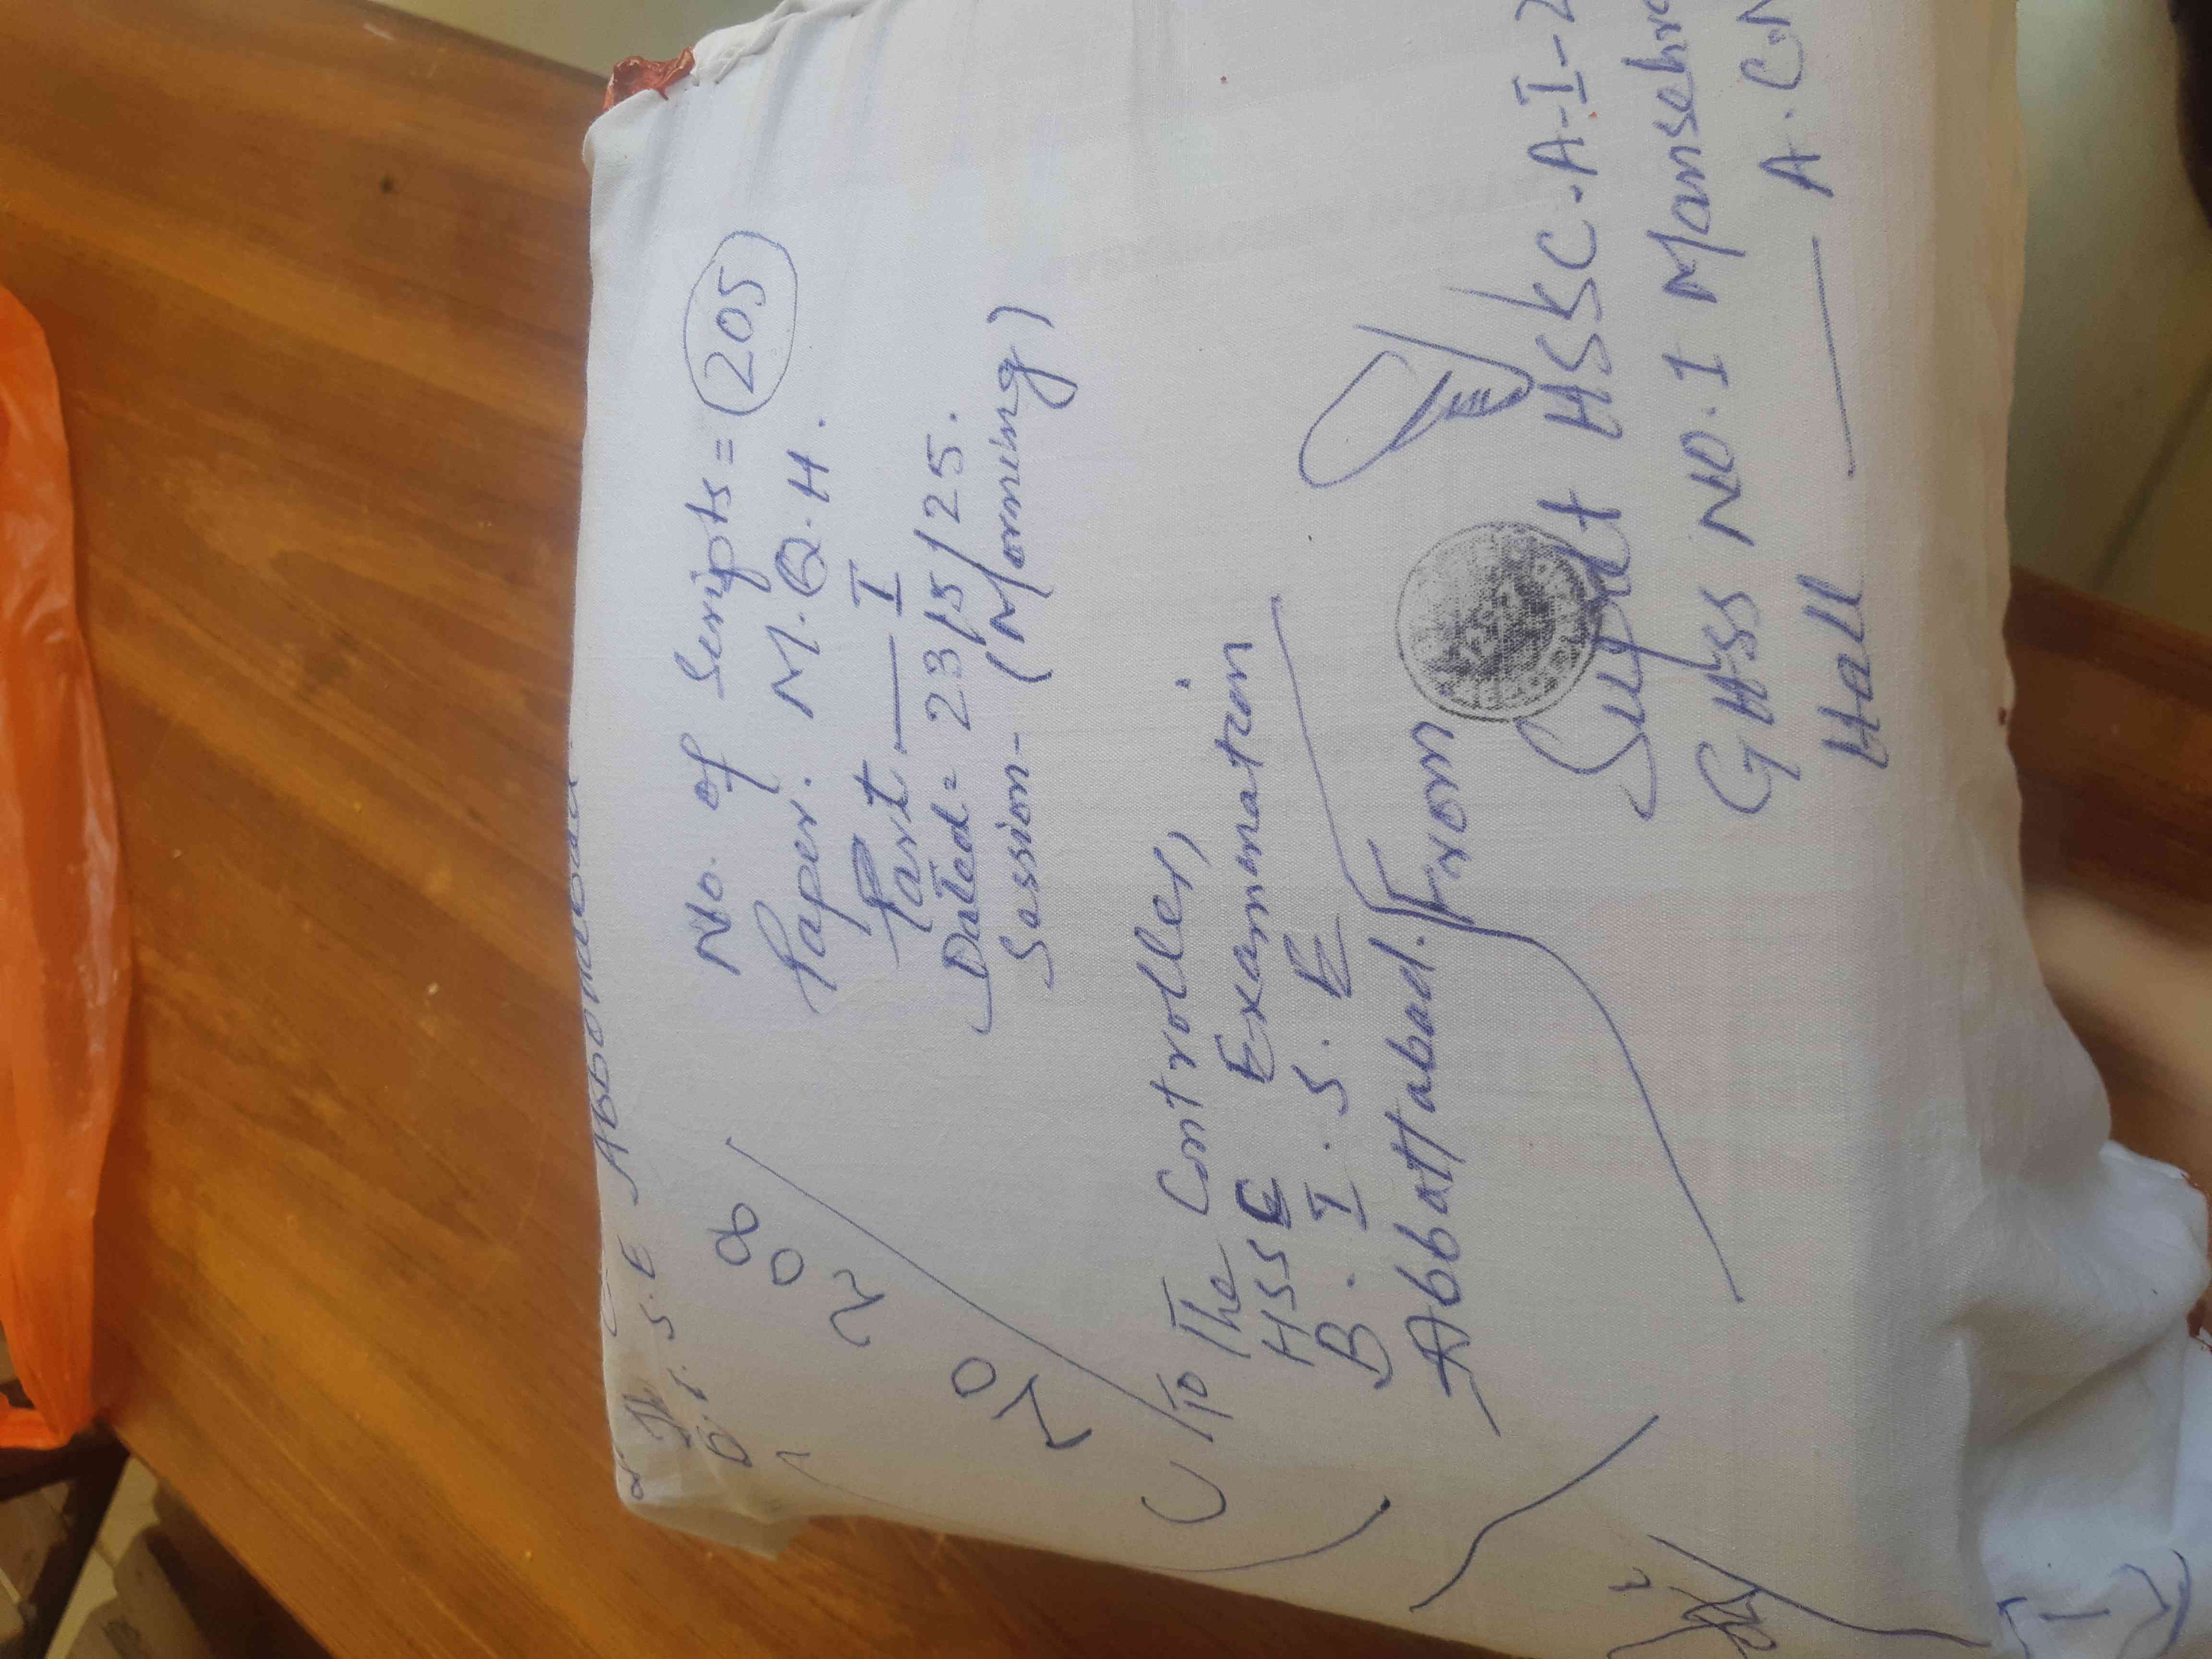 B.I.S.E Abbottabad
No. of Scripts = 205
Paper. M.Q.H.
Part — I
Dated = 23/5/25.
Session - (Morning)
To
The Controller,
HSSC Examination
B.I.S.E
Abbottabad.
From
Supdt HSSC.A-I-2
GHSS NO.I Mansehra
Hall — A.